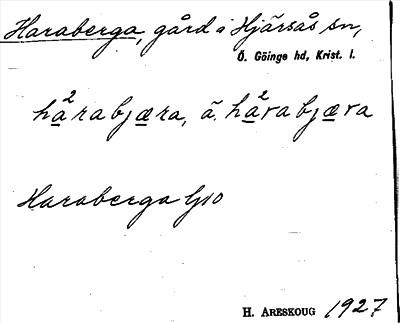 Haraberga, gård i Hjärsås sn,
Ö. Göinge hd, Krist. l.
ha²rabjæra, ä. ha²rabjæra
Haraberga Gjlo
H. ARESKOUG 1927